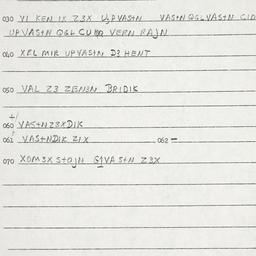 030 VI KEN IX Z3X UPVASTN VASTN QGLVASTN CID
UPVASTN QGL CU VERN RAJN
040 XEL MIR UPVASTN D3 HENT
050 VAL Z3 ZENEN BRIDIK
060 VASTNZ3XDIK
061 VASTNDIK ZIX 062 –
070 XOM3X STOJN GIVASTN Z3X